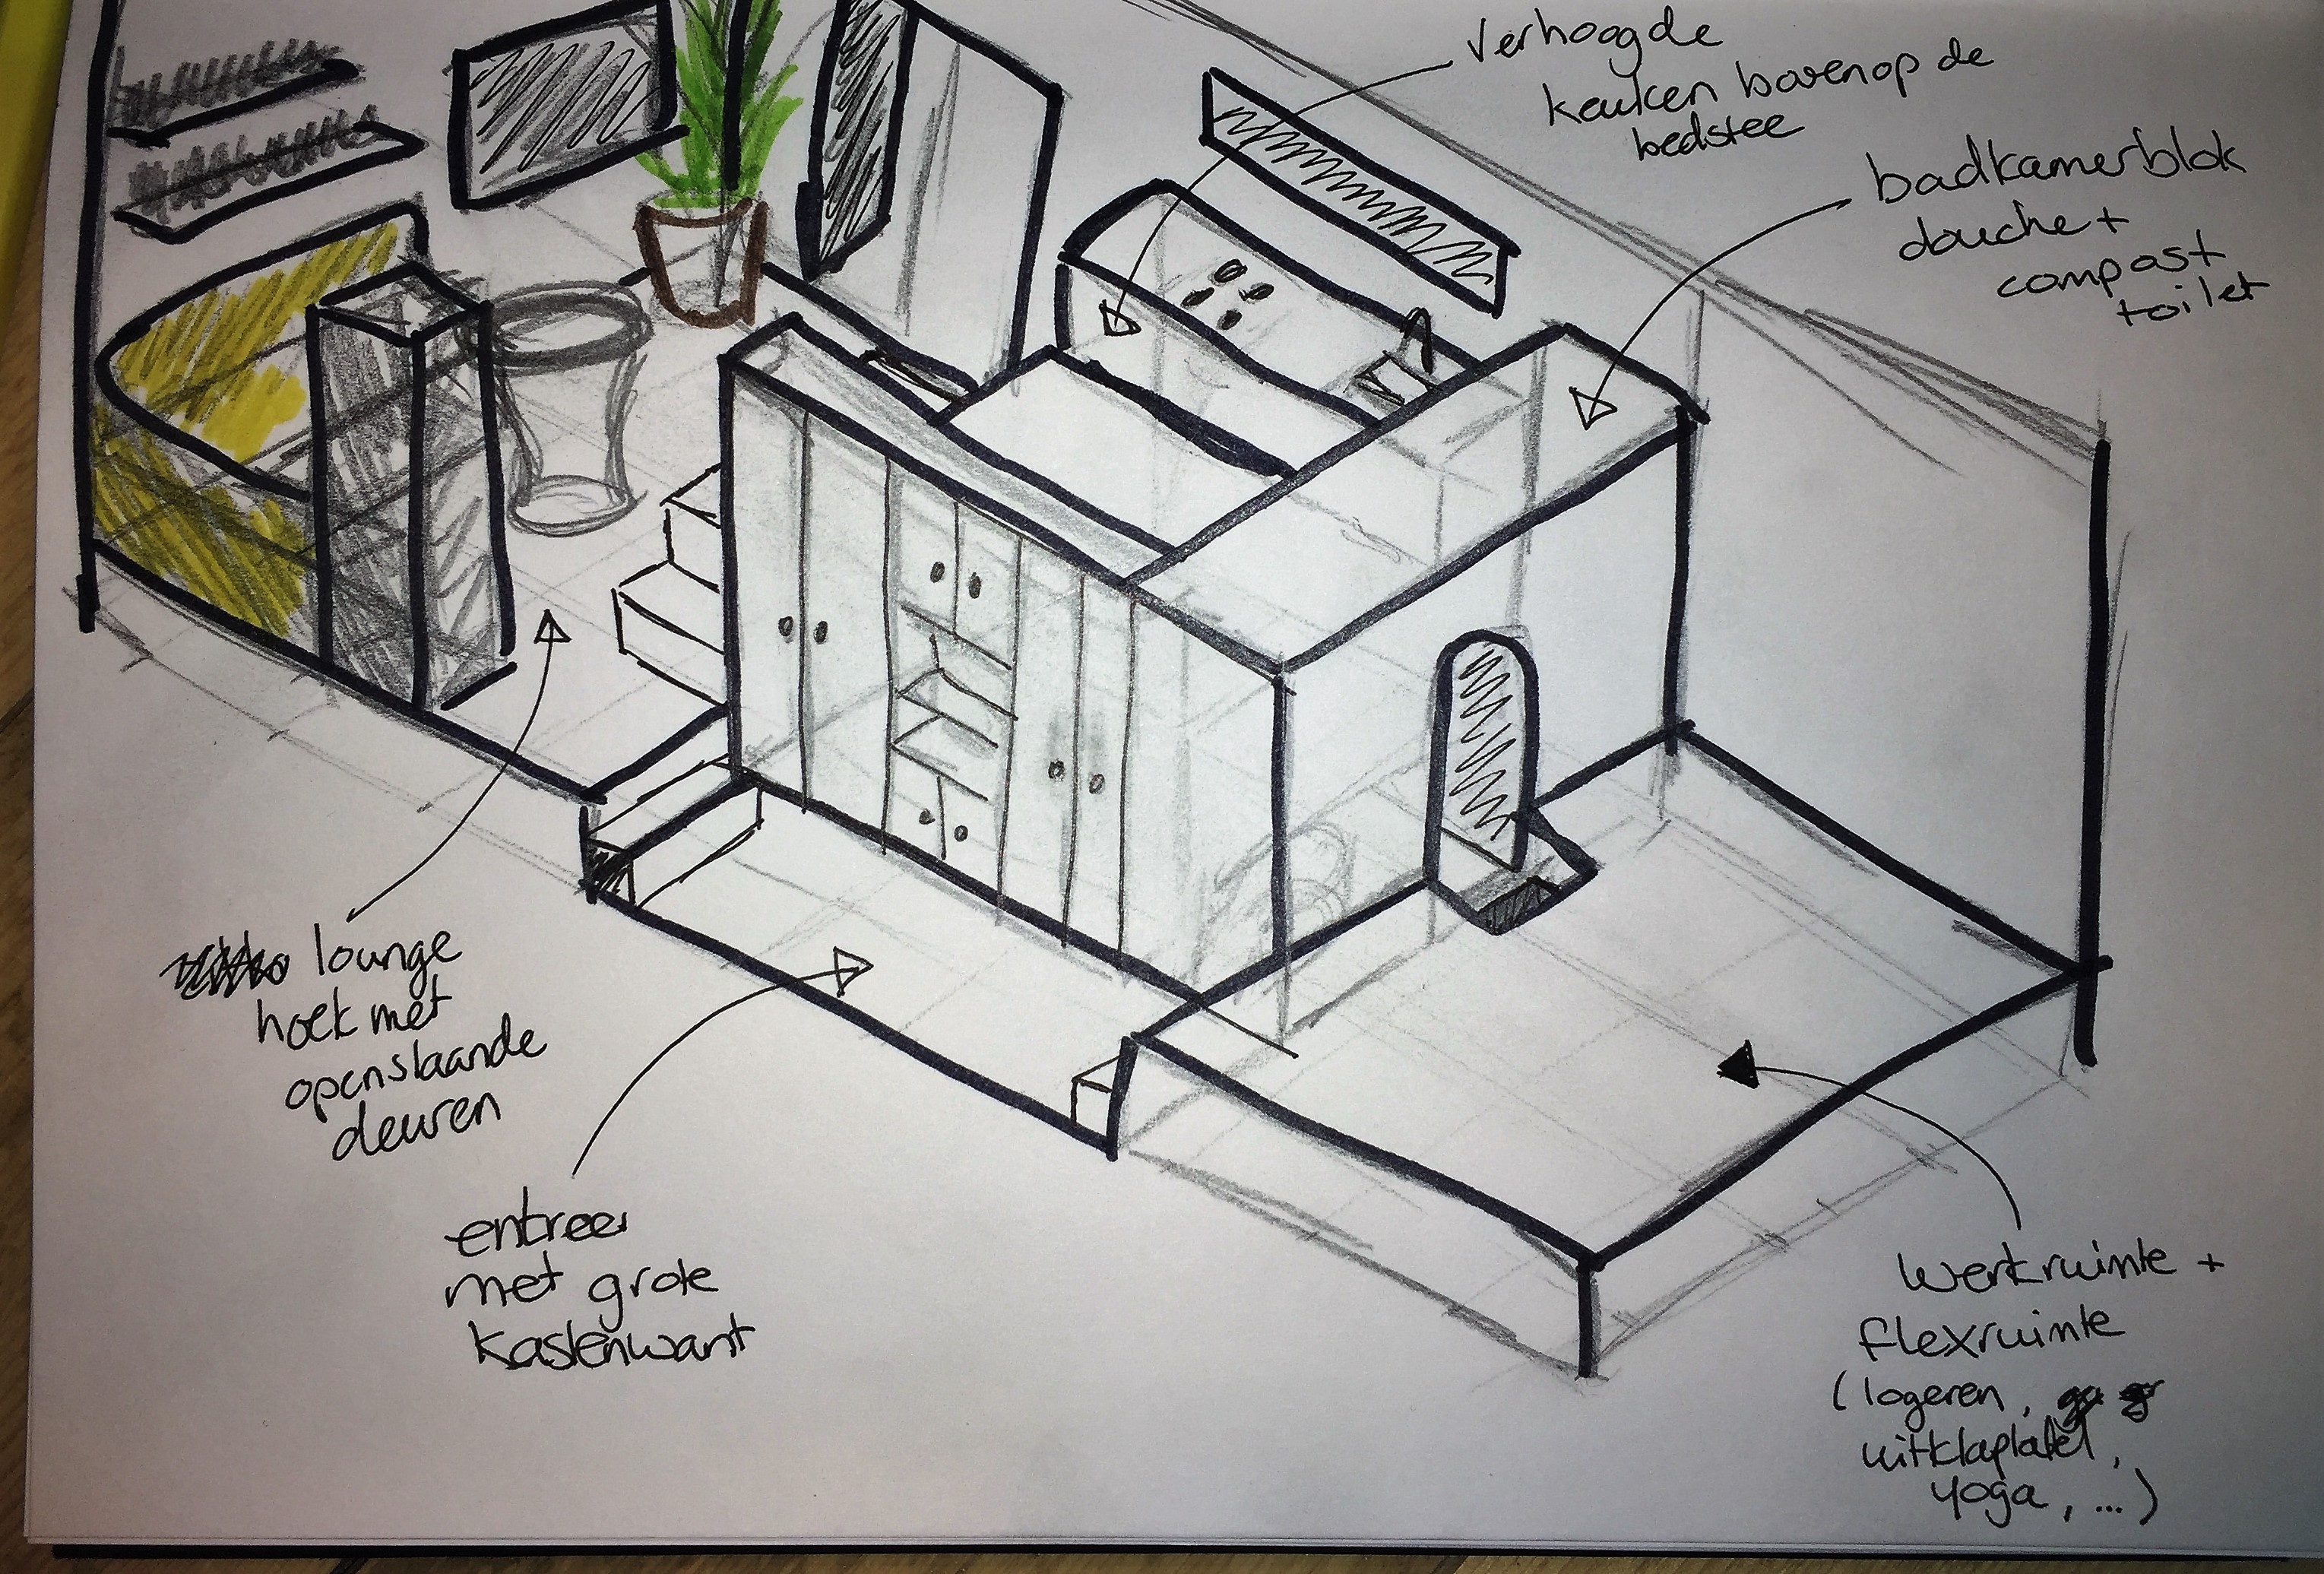 verhoogde
keuken bovenop de
bedstee
badkamerblok
douche +
compost
toilet
lounge
hoek met
openslaande
deuren
entree
met grote
kastenwant
werkruimte +
flexruimte
(logeren,
uitklaptafel,
yoga, ...)